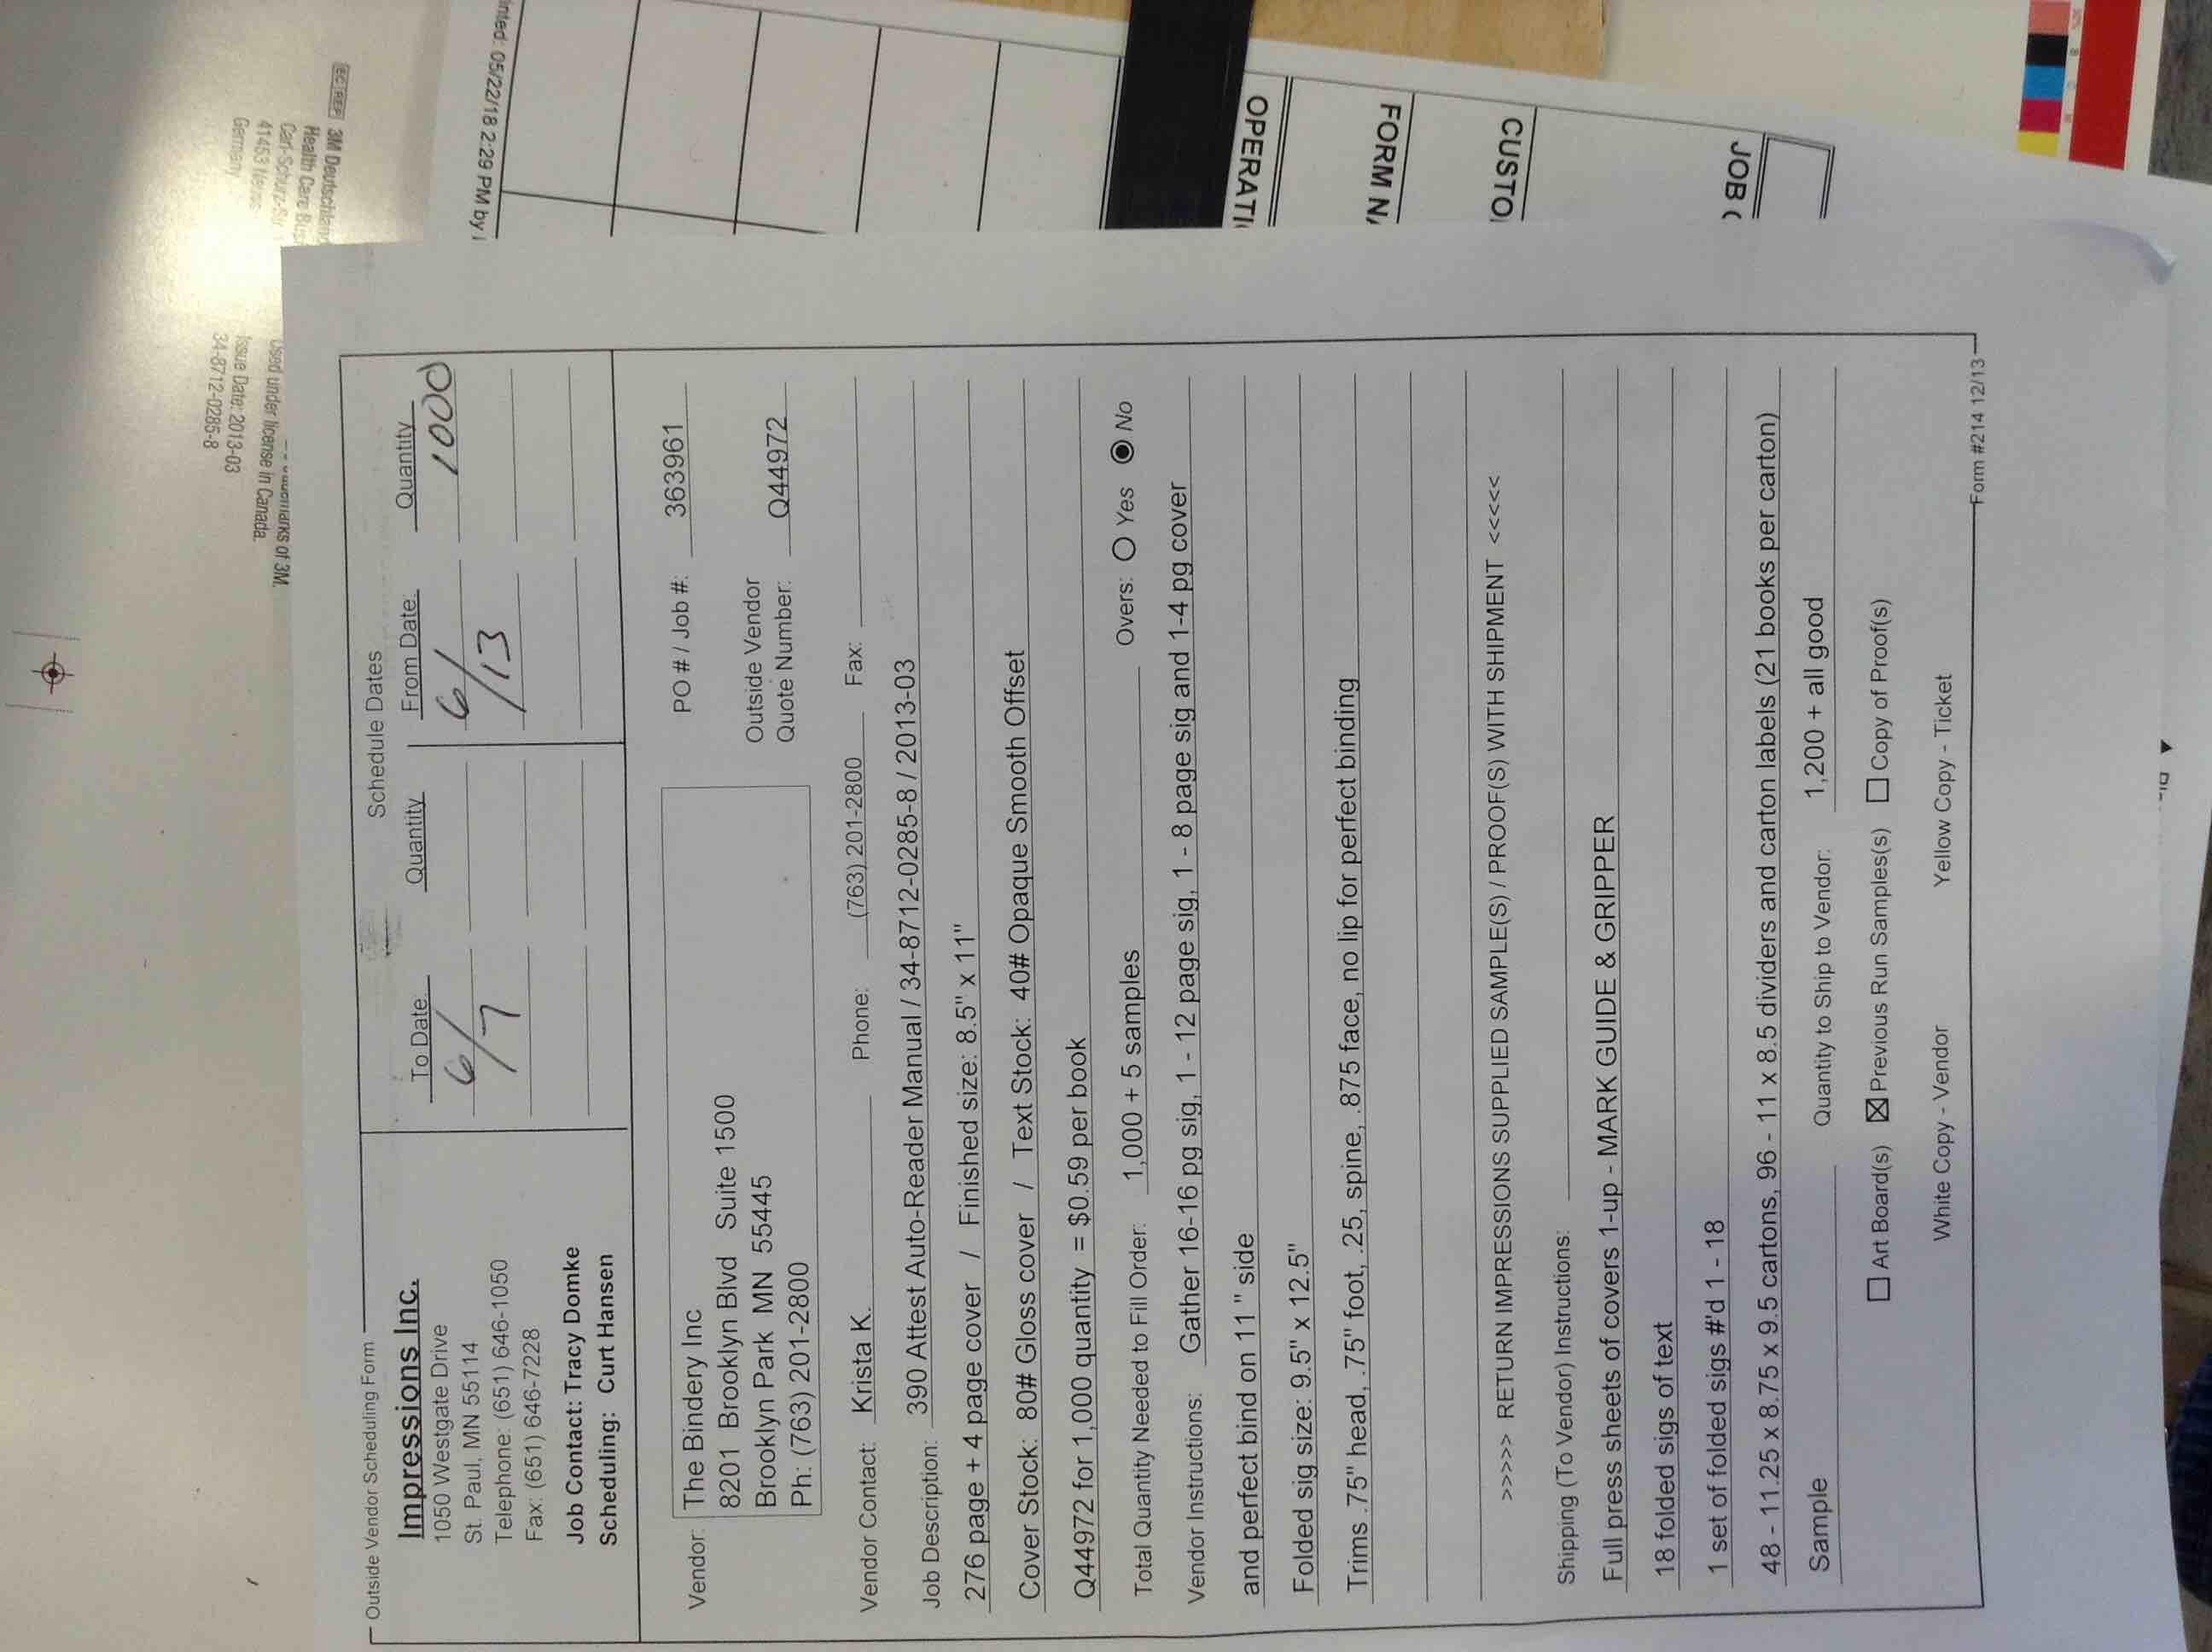 Outside Vendor Scheduling Form
Impressions Inc.
1050 Westgate Drive
St. Paul, MN 55114
Telephone: (651) 646-1050
Fax: (651) 646-7228
Job Contact: Tracy Domke
Scheduling: Curt Hansen
Schedule Dates
To Date: Quantity From Date: Quantity
6/7 6/13 1000
Vendor: The Bindery Inc
8201 Brooklyn Blvd Suite 1500
Brooklyn Park MN 55445
Ph: (763) 201-2800
PO # / Job #: 363961
Outside Vendor
Quote Number: Q44972
Vendor Contact: Krista K. Phone: (763) 201-2800 Fax:
Job Description: 390 Attest Auto-Reader Manual / 34-8712-0285-8 / 2013-03
276 page + 4 page cover / Finished size: 8.5" x 11"
Cover Stock: 80# Gloss cover / Text Stock: 40# Opaque Smooth Offset
Q44972 for 1,000 quantity = $0.59 per book
Total Quantity Needed to Fill Order: 1,000 + 5 samples Overs: Yes No
Vendor Instructions: Gather 16-16 pg sig, 1 - 12 page sig, 1 - 8 page sig and 1-4 pg cover
and perfect bind on 11 " side
Folded sig size: 9.5" x 12.5"
Trims .75" head, .75" foot, .25, spine, .875 face, no lip for perfect binding
>>>>> RETURN IMPRESSIONS SUPPLIED SAMPLE(S) / PROOF(S) WITH SHIPMENT <<<<<
Shipping (To Vendor) Instructions:
Full press sheets of covers 1-up - MARK GUIDE & GRIPPER
18 folded sigs of text
1 set of folded sigs #'d 1 - 18
48 - 11.25 x 8.75 x 9.5 cartons, 96 - 11 x 8.5 dividers and carton labels (21 books per carton)
Sample Quantity to Ship to Vendor: 1,200 + all good
Art Board(s) Previous Run Samples(s) Copy of Proof(s)
White Copy - Vendor Yellow Copy - Ticket
Form #214 12/13
EC REP 3M Deutschland
Health Care Busi
Carl-Schurz-Str
41453 Neuss
Germany
marks of 3M.
Used under license in Canada.
Issue Date: 2013-03
34-8712-0285-8
inted: 05/22/18 2:29 PM by
OPERATI
FORM NA
CUSTO
JOB